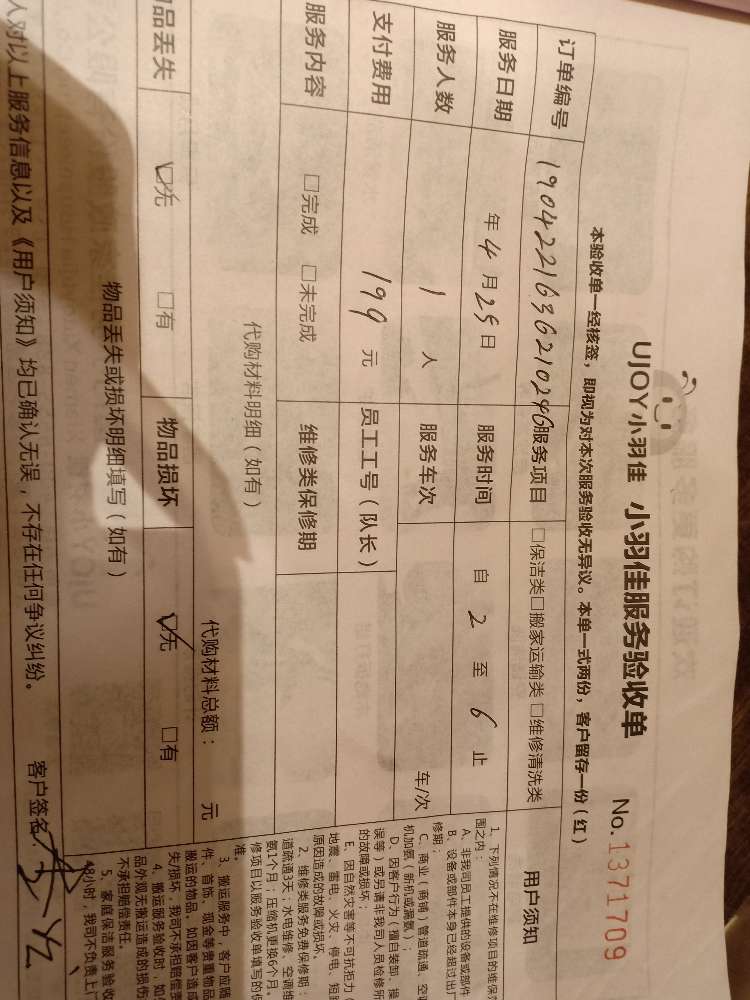 UJOY小羽佳 小羽佳服务验收单
No.1371709
本验收单一经核签，即视为对本次服务验收无异议。本单一式两份，客户留存一份（红）
订单编号 1904221636210246 服务项目 □保洁类□搬家运输类□维修清洗类
服务日期 年4月25日 服务时间 自2至6止
服务人数 1人 服务车次 车/次
支付费用 199元 员工工号（队长）
服务内容 □完成 □未完成 维修类保修期
代购材料明细（如有）
代购材料总额： 元
品丢失 ☑无 □有 物品损坏 ☑无 □有
物品丢失或损坏明细填写（如有）
人对以上服务信息以及《用户须知》均已确认无误，不存在任何争议纠纷。
客户签名
用户须知
1、下列情况不在维修项目的维保
围之内：
A、非我司员工提供的设备或部件
B、设备或部件本身已经超过出厂
修期；
C、商业（商铺）管道疏通、空
机加氨（新机或漏氨）；
D、因客户行为（擅自装卸、操
误等）或另请非我司人员检修所
的故障或损坏；
E、因自然灾害等不可抗拒力（
地震、雷电、火灾、停电、短
原因造成的故障或损坏。
2、维修类服务免费保修期：
道疏通3天；水电维修、空调维
氨1个月；压缩机更换6个月。
修项目以服务验收单填写的保
准。
3、搬运服务中，客户应随
件、首饰、现金等贵重物品
搬运的物品，如因客户造成
失/损坏，我司不承担赔偿责
4、搬运服务验收时，如
品外观无搬运造成的损伤
不承担赔偿责任。
5、家庭保洁服务验收
48小时，我司不负责上门